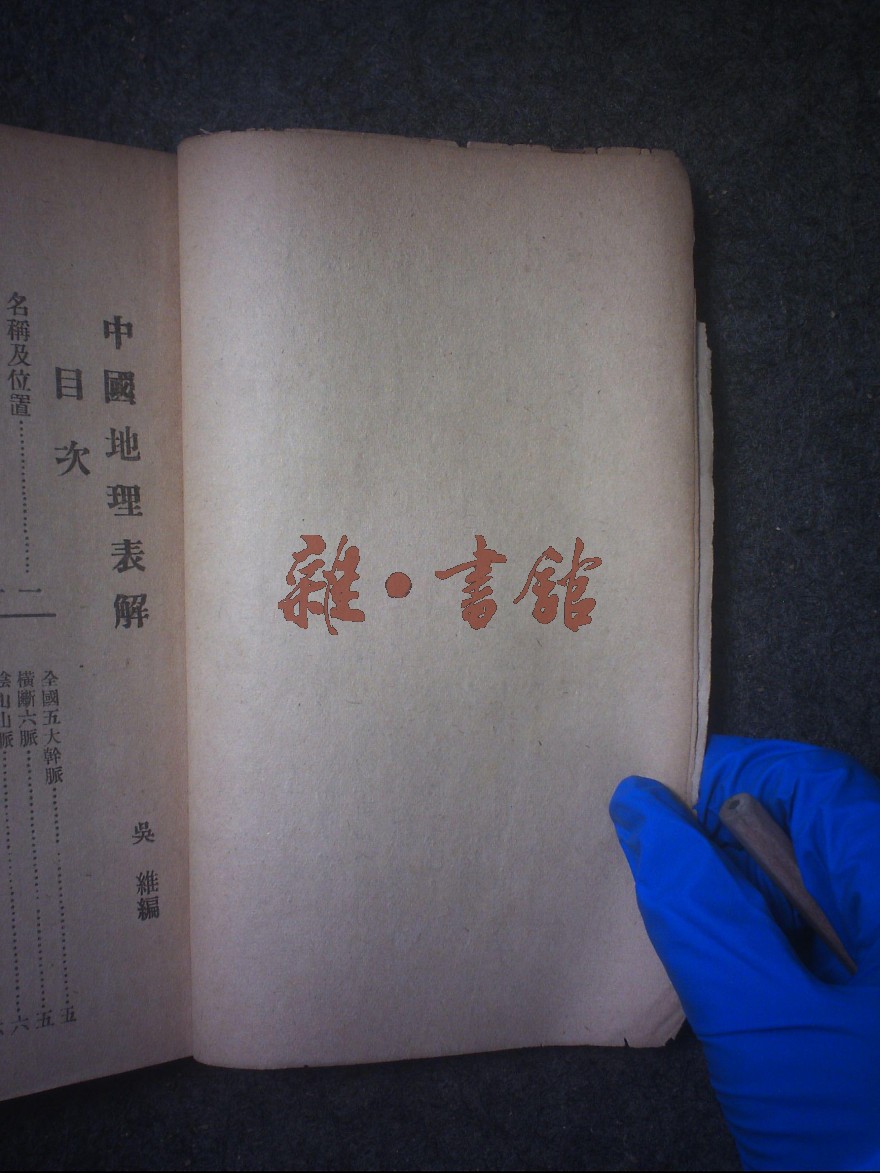 中國地理表解
吳維編
目次
名稱及位置
全國五大幹脈 五
橫斷六脈 五
陰山山脈 六
雜・書館